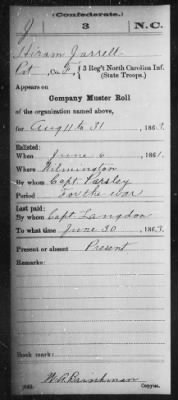 (Confederate.)
J 3 N.C.
Hiram Jarrell
Pvt, Co. F, 3 Reg't North Carolina Inf.
(State Troops.)
Appears on
Company Muster Roll
of the organization named above,
for Aug 11 to 31, 1863.
Enlisted:
When June 6, 1861.
Where Wilmington
By whom Capt. Parsley
Period For the war
Last paid:
By whom Capt Langdon
To what time June 30, 1863.
Present or absent Present
Remarks:
Book mark:
(642)
Copyist.